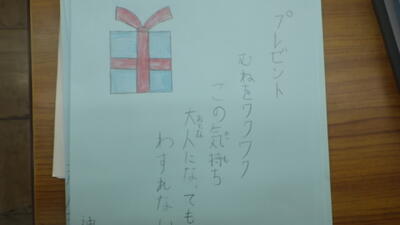 プレゼント
むねをワクワク
この気持ち
大人になっても
わすれない